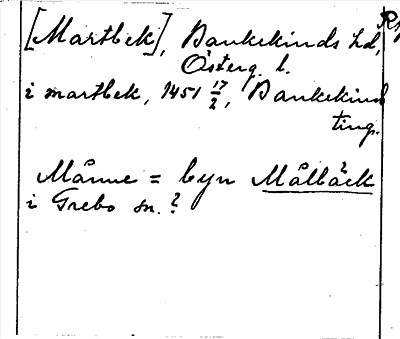 [Martbek], Bankekinds hd,
Österg. l.
i martbek, 1451 17/2, Bankekinds
ting.
Månne = byn Målbäck
i Grebo sn.?